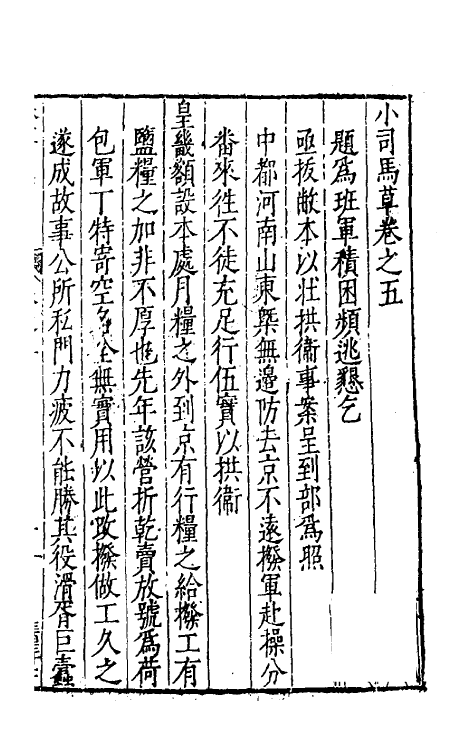 小司馬草卷之五
題為班軍積困頻逃懇乞
亟拔敝本以壯拱衛事案呈到部為照
中都河南山東槩無邊防去京不遠撥軍赴操分
番來徃不徒充足行伍實以拱衛
皇畿額設本處月糧之外到京有行糧之給撥工有
鹽糧之加非不厚也先年該營折乾賣放號為荷
包軍丁特寄空名全無實用以此改撥做工久之
遂成故事公所私門力疲不能勝其役滑胥巨蠧